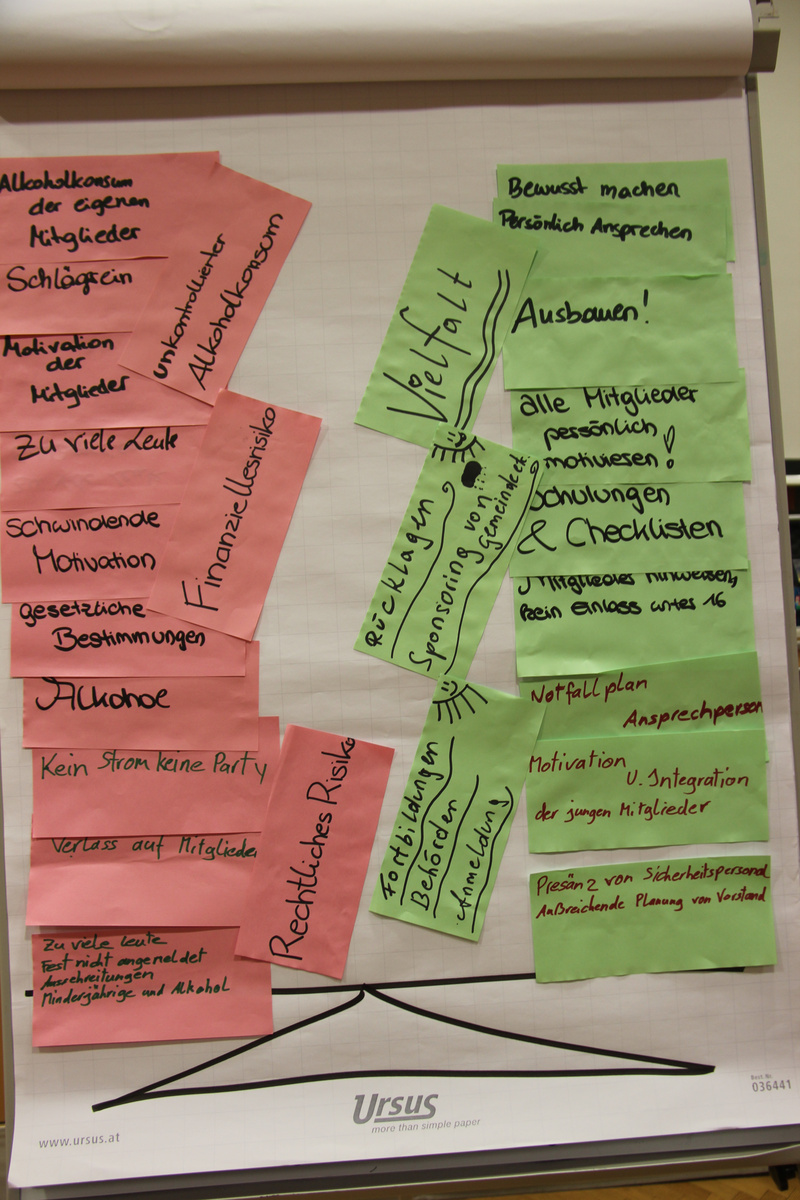 Alkoholkonsum
der eigenen
Mitglieder
Schlägrein
Motivation
der
Mitglieder
Zu viele Leute
schwindende
Motivation
gesetzliche
Bestimmungen
Alkohol
Kein Strom keine Party
Verlass auf Mitglieder
Zu viele leute
Fest nicht angemeldet
Ausschreitungen
Minderjährige und Alkohol
unkontrollierter
Alkoholkonsum
Finanziellesrisiko
Rechtliches Risiko
Vielfalt
Rücklagen
Sponsoring von
Gemeinde
Fortbildungen
Behörden
Anmeldung
Bewusst machen
Persönlich Ansprechen
Ausbauen!
alle Mitglieder
persönlich
motivieren!
Schulungen
& Checklisten
Mitglieder hinweisen,
kein einlass unter 16
Notfallplan
Ansprechperson
Motivation
U. Integration
der jungen Mitglieder
Presänz von Sicherheitspersonal
Außreichende Planung von Vorstand
Ursus
more than simple paper
www.ursus.at
Best. Nr.
036441